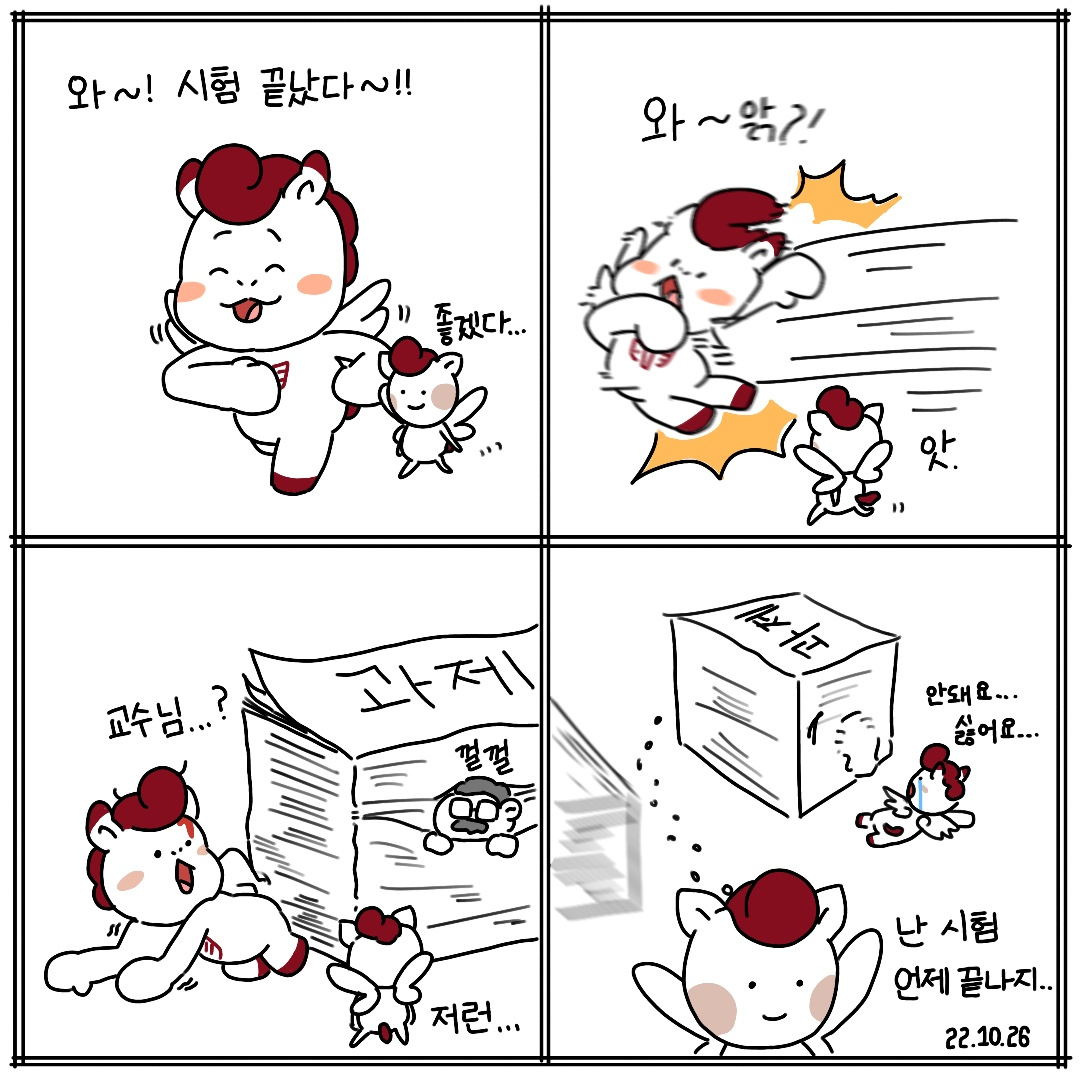 와~! 시험 끝났다~!!
좋겠다...
와~앍?!
앗.
교수님...?
과제
껄껄
저런...
안돼요...
싫어요...
난 시험
언제 끝나지..
22.10.26